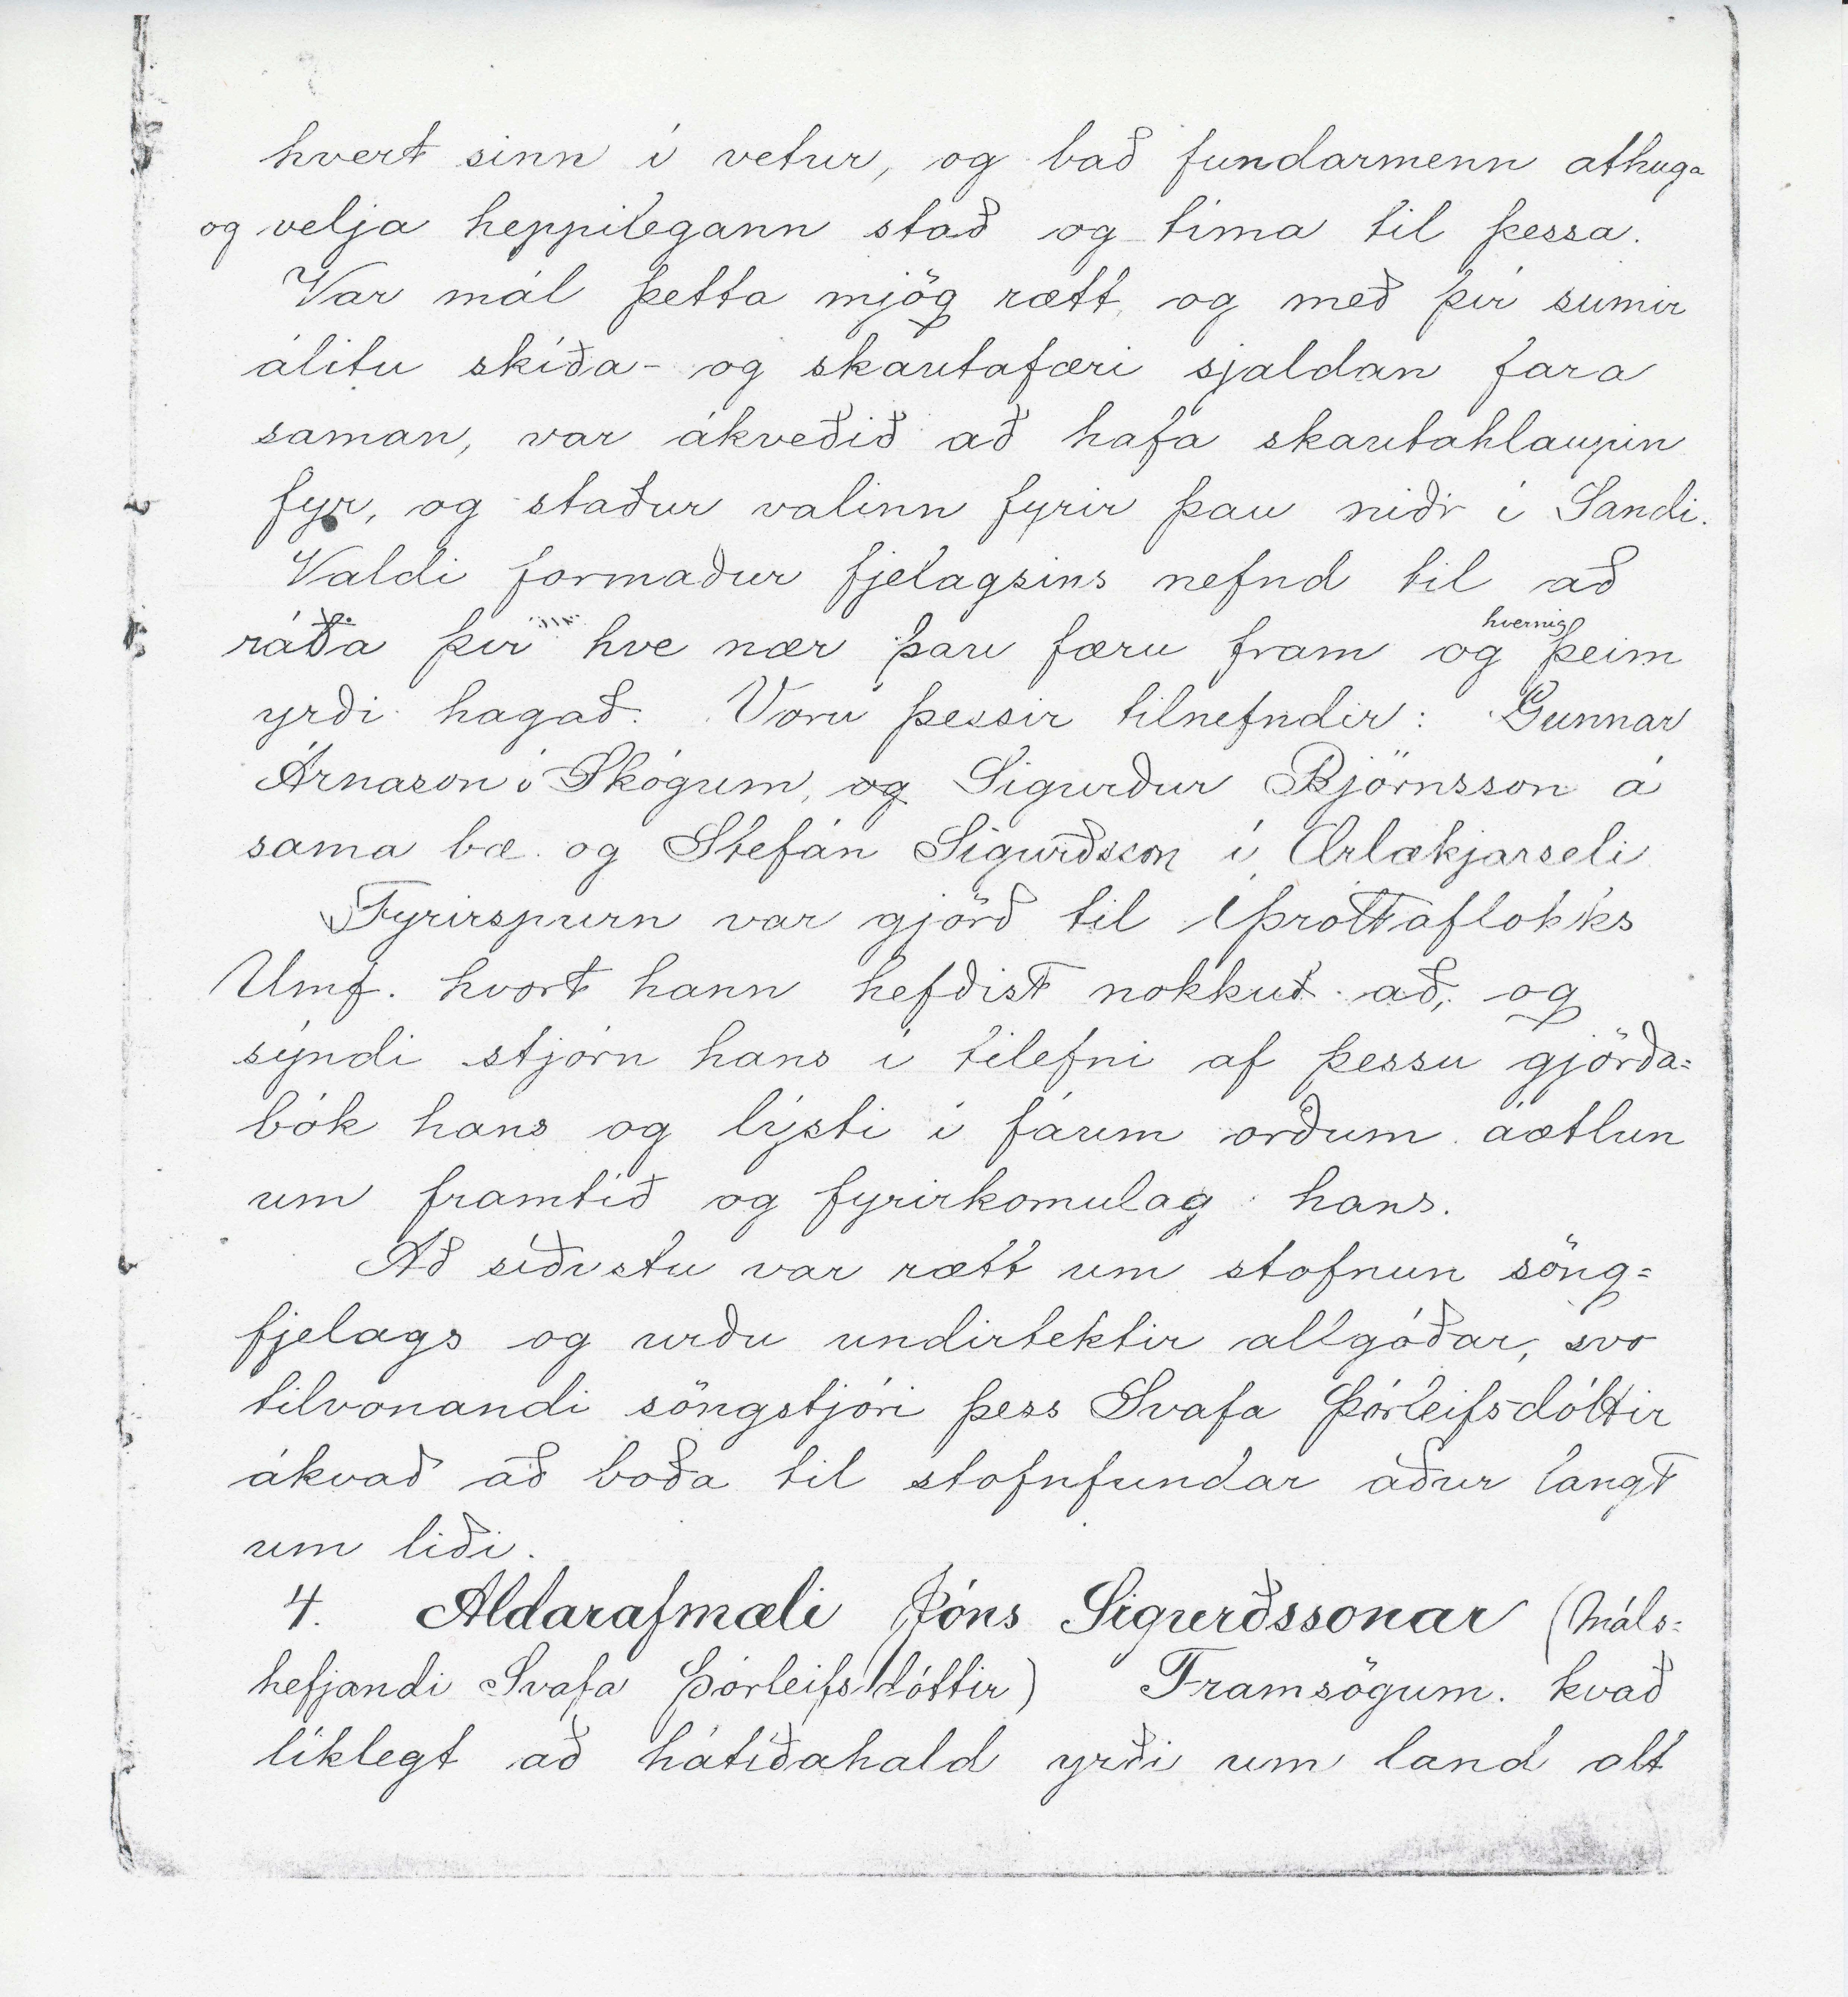 hvert sinn í vetur, og bað fundarmenn athuga
og velja heppilegann stað og tíma til þessa.
Var mál þetta mjög rætt, og með því sumir
álitu skíða- og skautafæri sjaldan fara
saman, var ákveðið að hafa skautahlaupin
fyr, og staður valinn fyrir þau niðr í Sandi.
Valdi formaður fjelagsins nefnd til að
ráða því hve nær þau færu fram og hvernig þeim
yrði hagað. Voru þessir tilnefndir: Gunnar
Árnason í Skógum, og Sigurður Björnsson á
sama bæ og Stefán Sigurðsson í Ærlækjarseli
Fyrirspurn var gjörð til Íþróttaflokks
Umf. hvort hann hefðist nokkuð að, og
sýndi stjórn hans í tilefni af þessu gjörða=
bók hans og lýsti í fáum orðum áætlun
um framtíð og fyrirkomulag hans.
Að síðustu var rætt um stofnun söng=
fjelags og urðu undirtektir allgóðar, svo
tilvonandi söngstjóri þess Svafa Þórleifsdóttir
ákvað að boða til stofnfundar áður langt
um liði.
4. Aldarafmæli Jóns Sigurðssonar (Máls=
hefjandi Svafa Þórleifsdóttir) Framsögum. kvað
líklegt að hátíðahald yrði um land alt